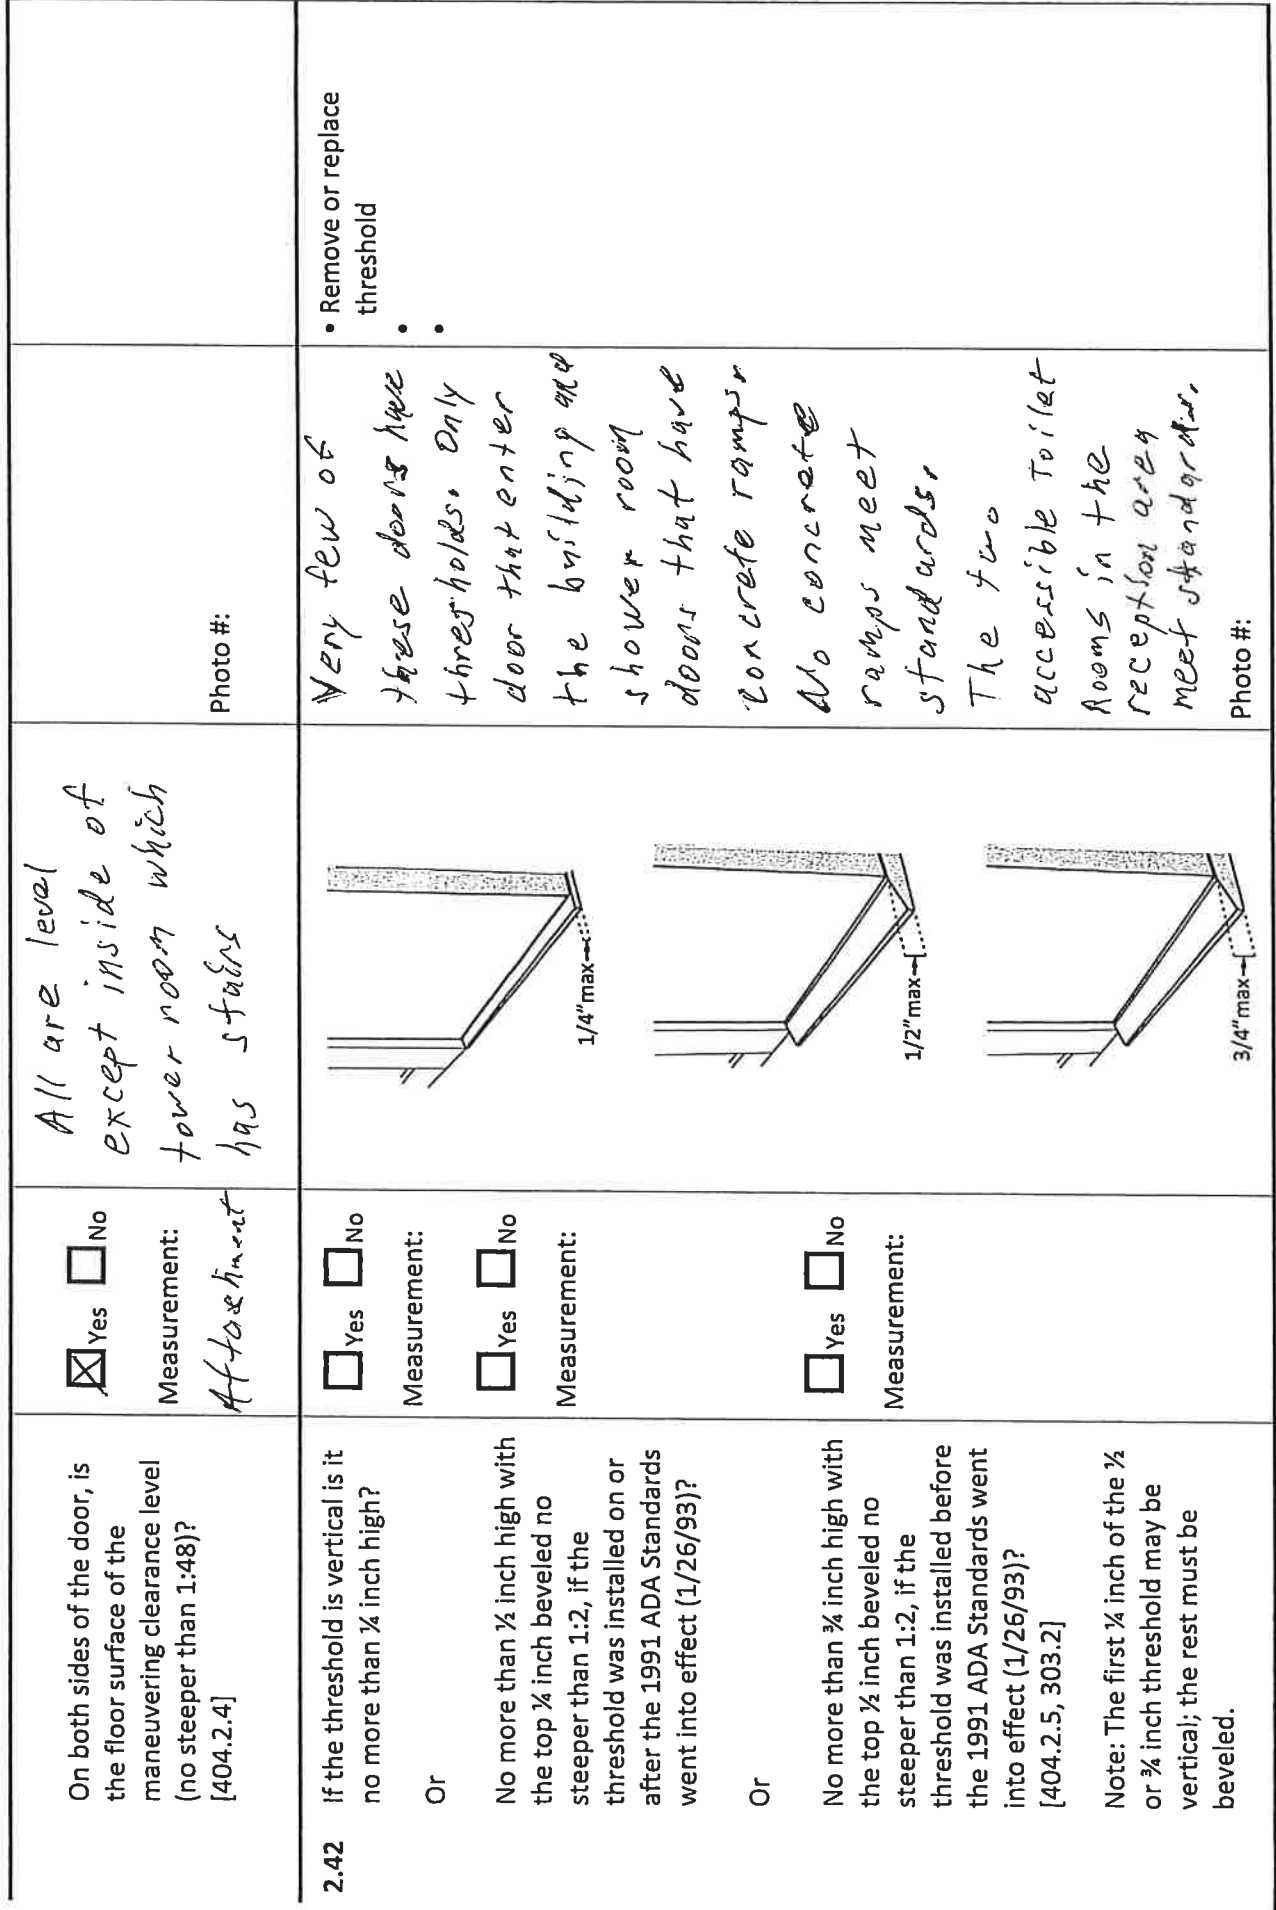 On both sides of the door, is
the floor surface of the
maneuvering clearance level
(no steeper than 1:48)?
[404.2.4]
Yes No
Measurement:
Attachment
All are level
except inside of
tower room which
has stairs
Photo #:
2.42 If the threshold is vertical is it
no more than ¼ inch high?
Or
No more than ½ inch high with
the top ¼ inch beveled no
steeper than 1:2, if the
threshold was installed on or
after the 1991 ADA Standards
went into effect (1/26/93)?
Or
No more than ¾ inch high with
the top ½ inch beveled no
steeper than 1:2, if the
threshold was installed before
the 1991 ADA Standards went
into effect (1/26/93)?
[404.2.5, 303.2]
Note: The first ¼ inch of the ½
or ¾ inch threshold may be
vertical; the rest must be
beveled.
Yes No
Measurement:
Yes No
Measurement:
Yes No
Measurement:
1/4"max
1/2"max
3/4"max
Very few of
these doors have
thresholds. Only
door that enter
the building and
shower room
doors that have
concrete ramps.
No concrete
ramps meet
standards.
The two
accessible Toilet
Rooms in the
reception area
meet standards.
Photo #:
• Remove or replace
threshold
•
•